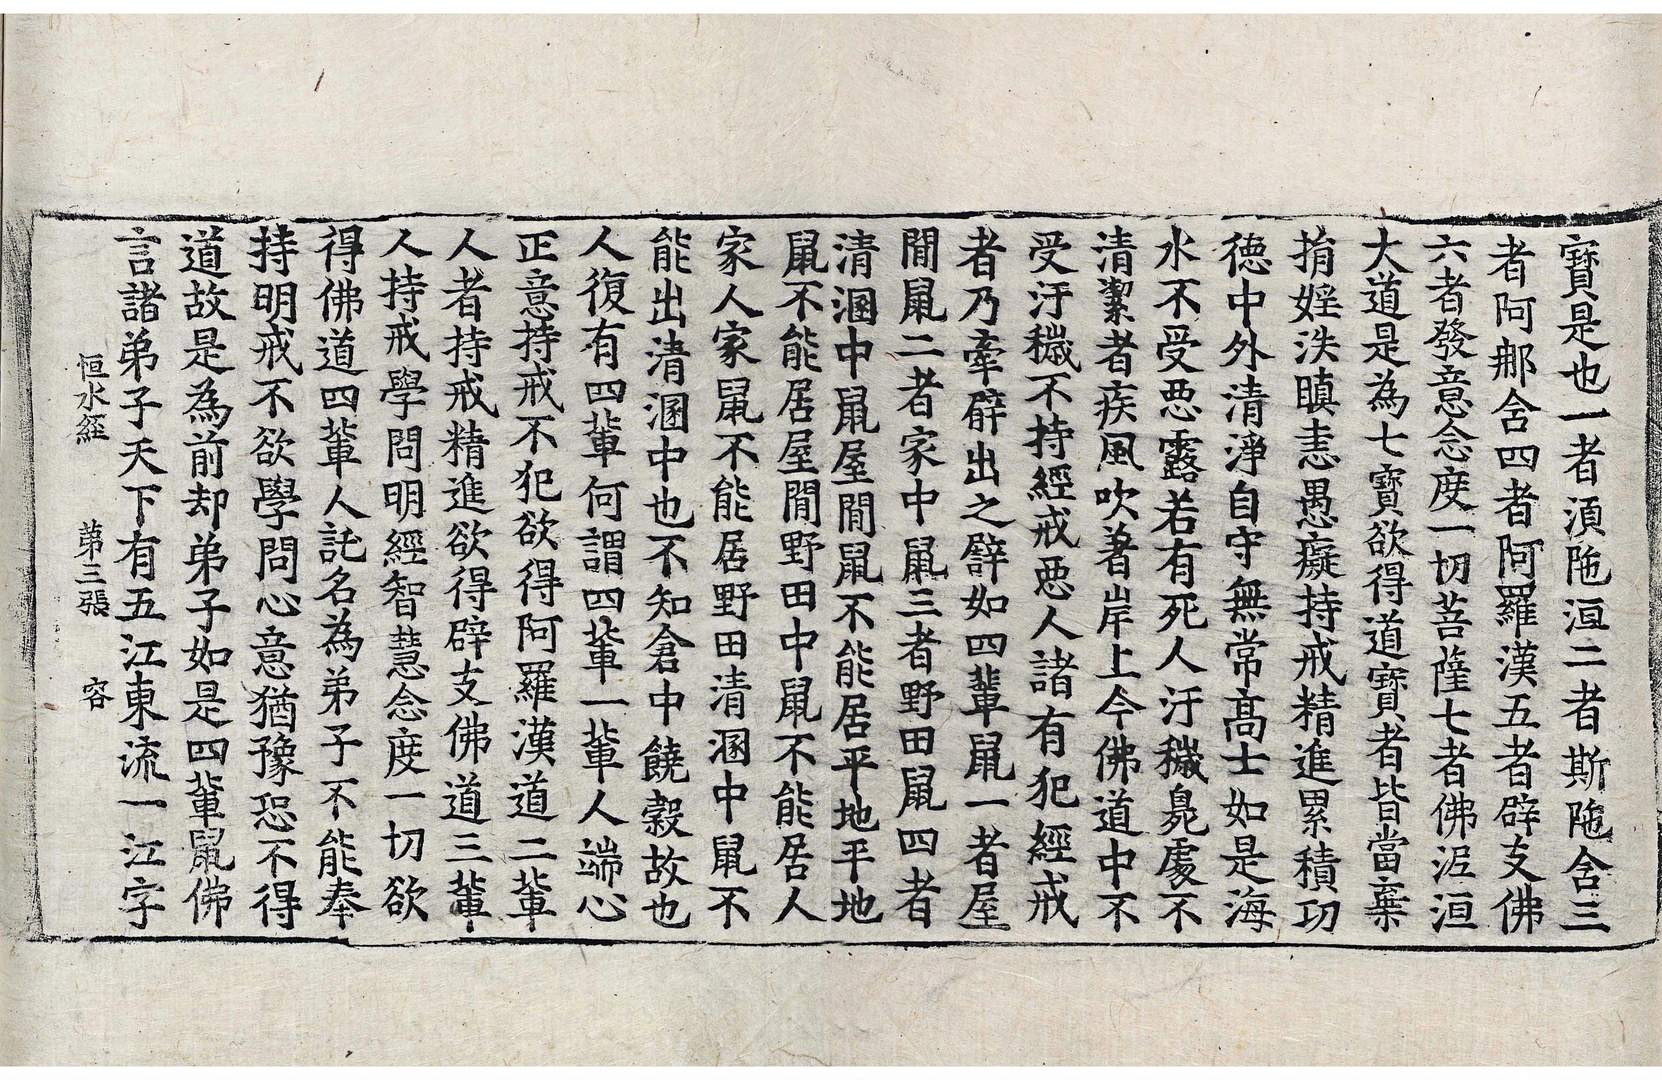 寶是也一者湏陁洹二者斯陁含三
者阿那含四者阿羅漢五者辟支佛
六者發意念度一切菩薩七者佛泥洹
大道是為七寶欲得道寶者皆當棄
捐婬泆瞋恚愚癡持戒精進累積功
德中外清淨自守無常高士如是海
水不受惡露若有死人汙穢臭處不
清潔者疾風吹著岸上今佛道中不
受汙穢不持經戒惡人諸有犯經戒
者乃牽辟出之譬如四輩鼠一者屋
間鼠二者家中鼠三者野田鼠四者
清溷中鼠屋間鼠不能居平地平地
鼠不能居屋間野田中鼠不能居人
家人家鼠不能居野田清溷中鼠不
能出清溷中也不知倉中饒穀故也
人復有四輩何謂四輩一輩人端心
正意持戒不犯欲得阿羅漢道二輩
人者持戒精進欲得辟支佛道三輩
人持戒學問明經智慧念度一切欲
得佛道四輩人託名為弟子不能奉
持明戒不欲學問心意猶豫恐不得
道故是為前却弟子如是四輩鼠佛
言諸弟子天下有五江東流一江字
恒水經 第三張 容